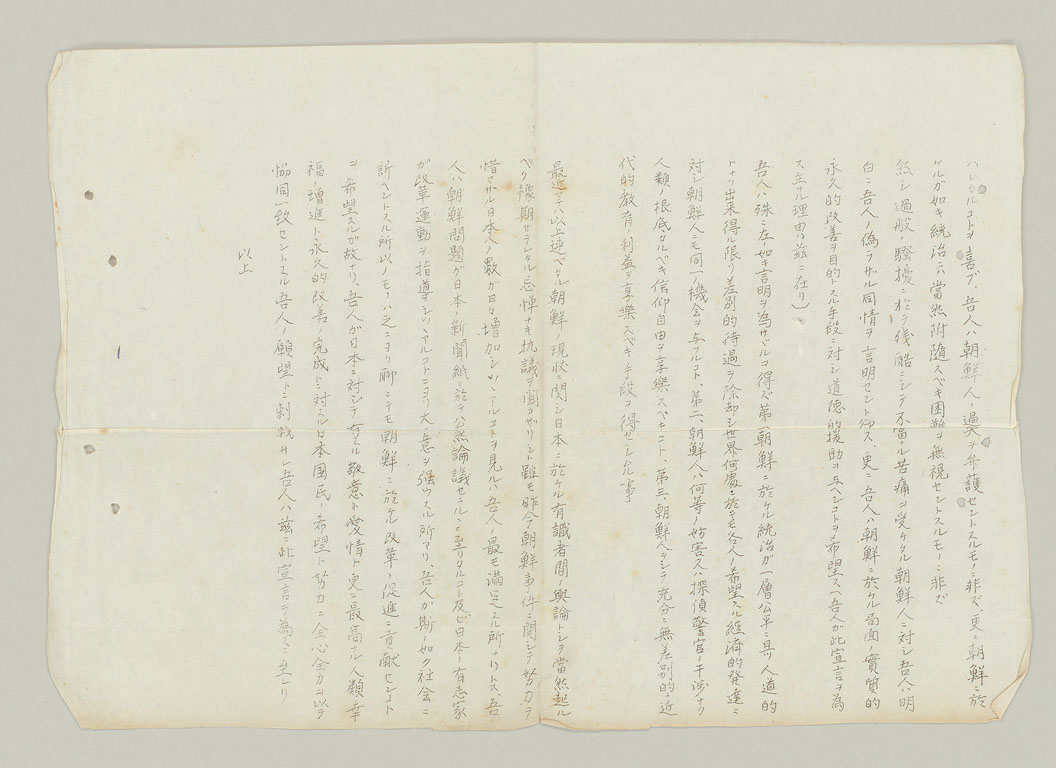 ハレタルコトヲ喜ブ、吾人ハ朝鮮人ノ過失ヲ弁護セントスルモノニ非ズ、更ニ朝鮮ニ於
ケルガ如キ統治ニハ当然附随スベキ困難ヲ無視セントスルモノニ非ズ
然シ過般ノ騒擾ニ於テ残酷ニシテ不当ナル苦痛ヲ受ケタル朝鮮人ニ対シ吾人ハ明
白ニ吾人ノ偽ラザル同情ヲ言明セント欲ス、更ニ吾人ハ朝鮮ニ於ケル局面ノ実質的
永久的改善ヲ目的トスル手段ニ対シ道徳的援助ヲ与ヘンコトヲ希望ス(吾人が此宣言ヲ為
ス主ナル理由ハ茲ニ在リ)
吾人ハ殊ニ左ノ如キ言明ヲ為サザルヲ得ズ第一、朝鮮ニ於ケル統治ガ一層公平ニ且ツ人道的
トナリ出来得ル限リ差別的待遇ヲ除却シ世界何処ニ於テモ各人ノ希望スル経済的発達ニ
対シ朝鮮人ニモ同一ノ機会ヲ与フルコト、第二、朝鮮人ハ何等ノ妨害又ハ探偵警官ノ干渉ナク
人類ノ根底タルベキ信仰自由ヲ享楽スベキコト、第三、朝鮮人ヲシテ充分ニ無差別的ニ近
代的教育ノ利益ヲ享楽スベキ手段ヲ得セシムル事
最近マデハ以上述ベタル朝鮮ノ現状ニ関シ日本ニ於ケル有識者間ノ輿論トシテ当然起ル
ベク予期セラレタル忌憚ナキ抗議ヲ聞カザリシト雖モ昨今朝鮮事件ニ関シテ努力ヲ
惜マザル日本人ノ数ガ日々増加シツヽアルコトヲ見ルハ吾人ノ最モ満足スル所ナリトス吾
人ハ朝鮮問題ガ日本ノ新聞紙ニ於テ公然論議セラルヽニ至リタルコト及ビ日本ノ有志家
ガ改革運動ヲ指導シツヽアルコトニヨリ大ニ意ヲ強ウスル所アリ、吾人ガ斯ノ如ク社会ニ
訴ヘントスル所以ノモノハ之ニヨリ聊ニテモ朝鮮ニ於ケル改革ノ促進ニ貢献セント
ヲ希望スルガ故ナリ、吾人ガ日本ニ対シテ有スル敬意ト愛情ト更ニ最高ナル人類ノ幸
福増進ト永久的改善ノ完成トニ対スル日本国民ノ希望ト努力ニ全心全力ヲ以テ
協同一致セントスル吾人ノ願望トニ刺戟サレ吾人ハ茲ニ此宣言ヲ為スニ至レリ
以上